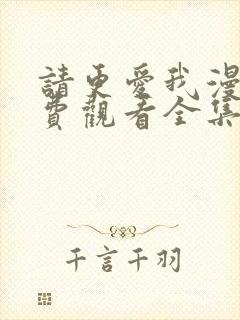 請更愛我漫
費觀看全集
千言千羽